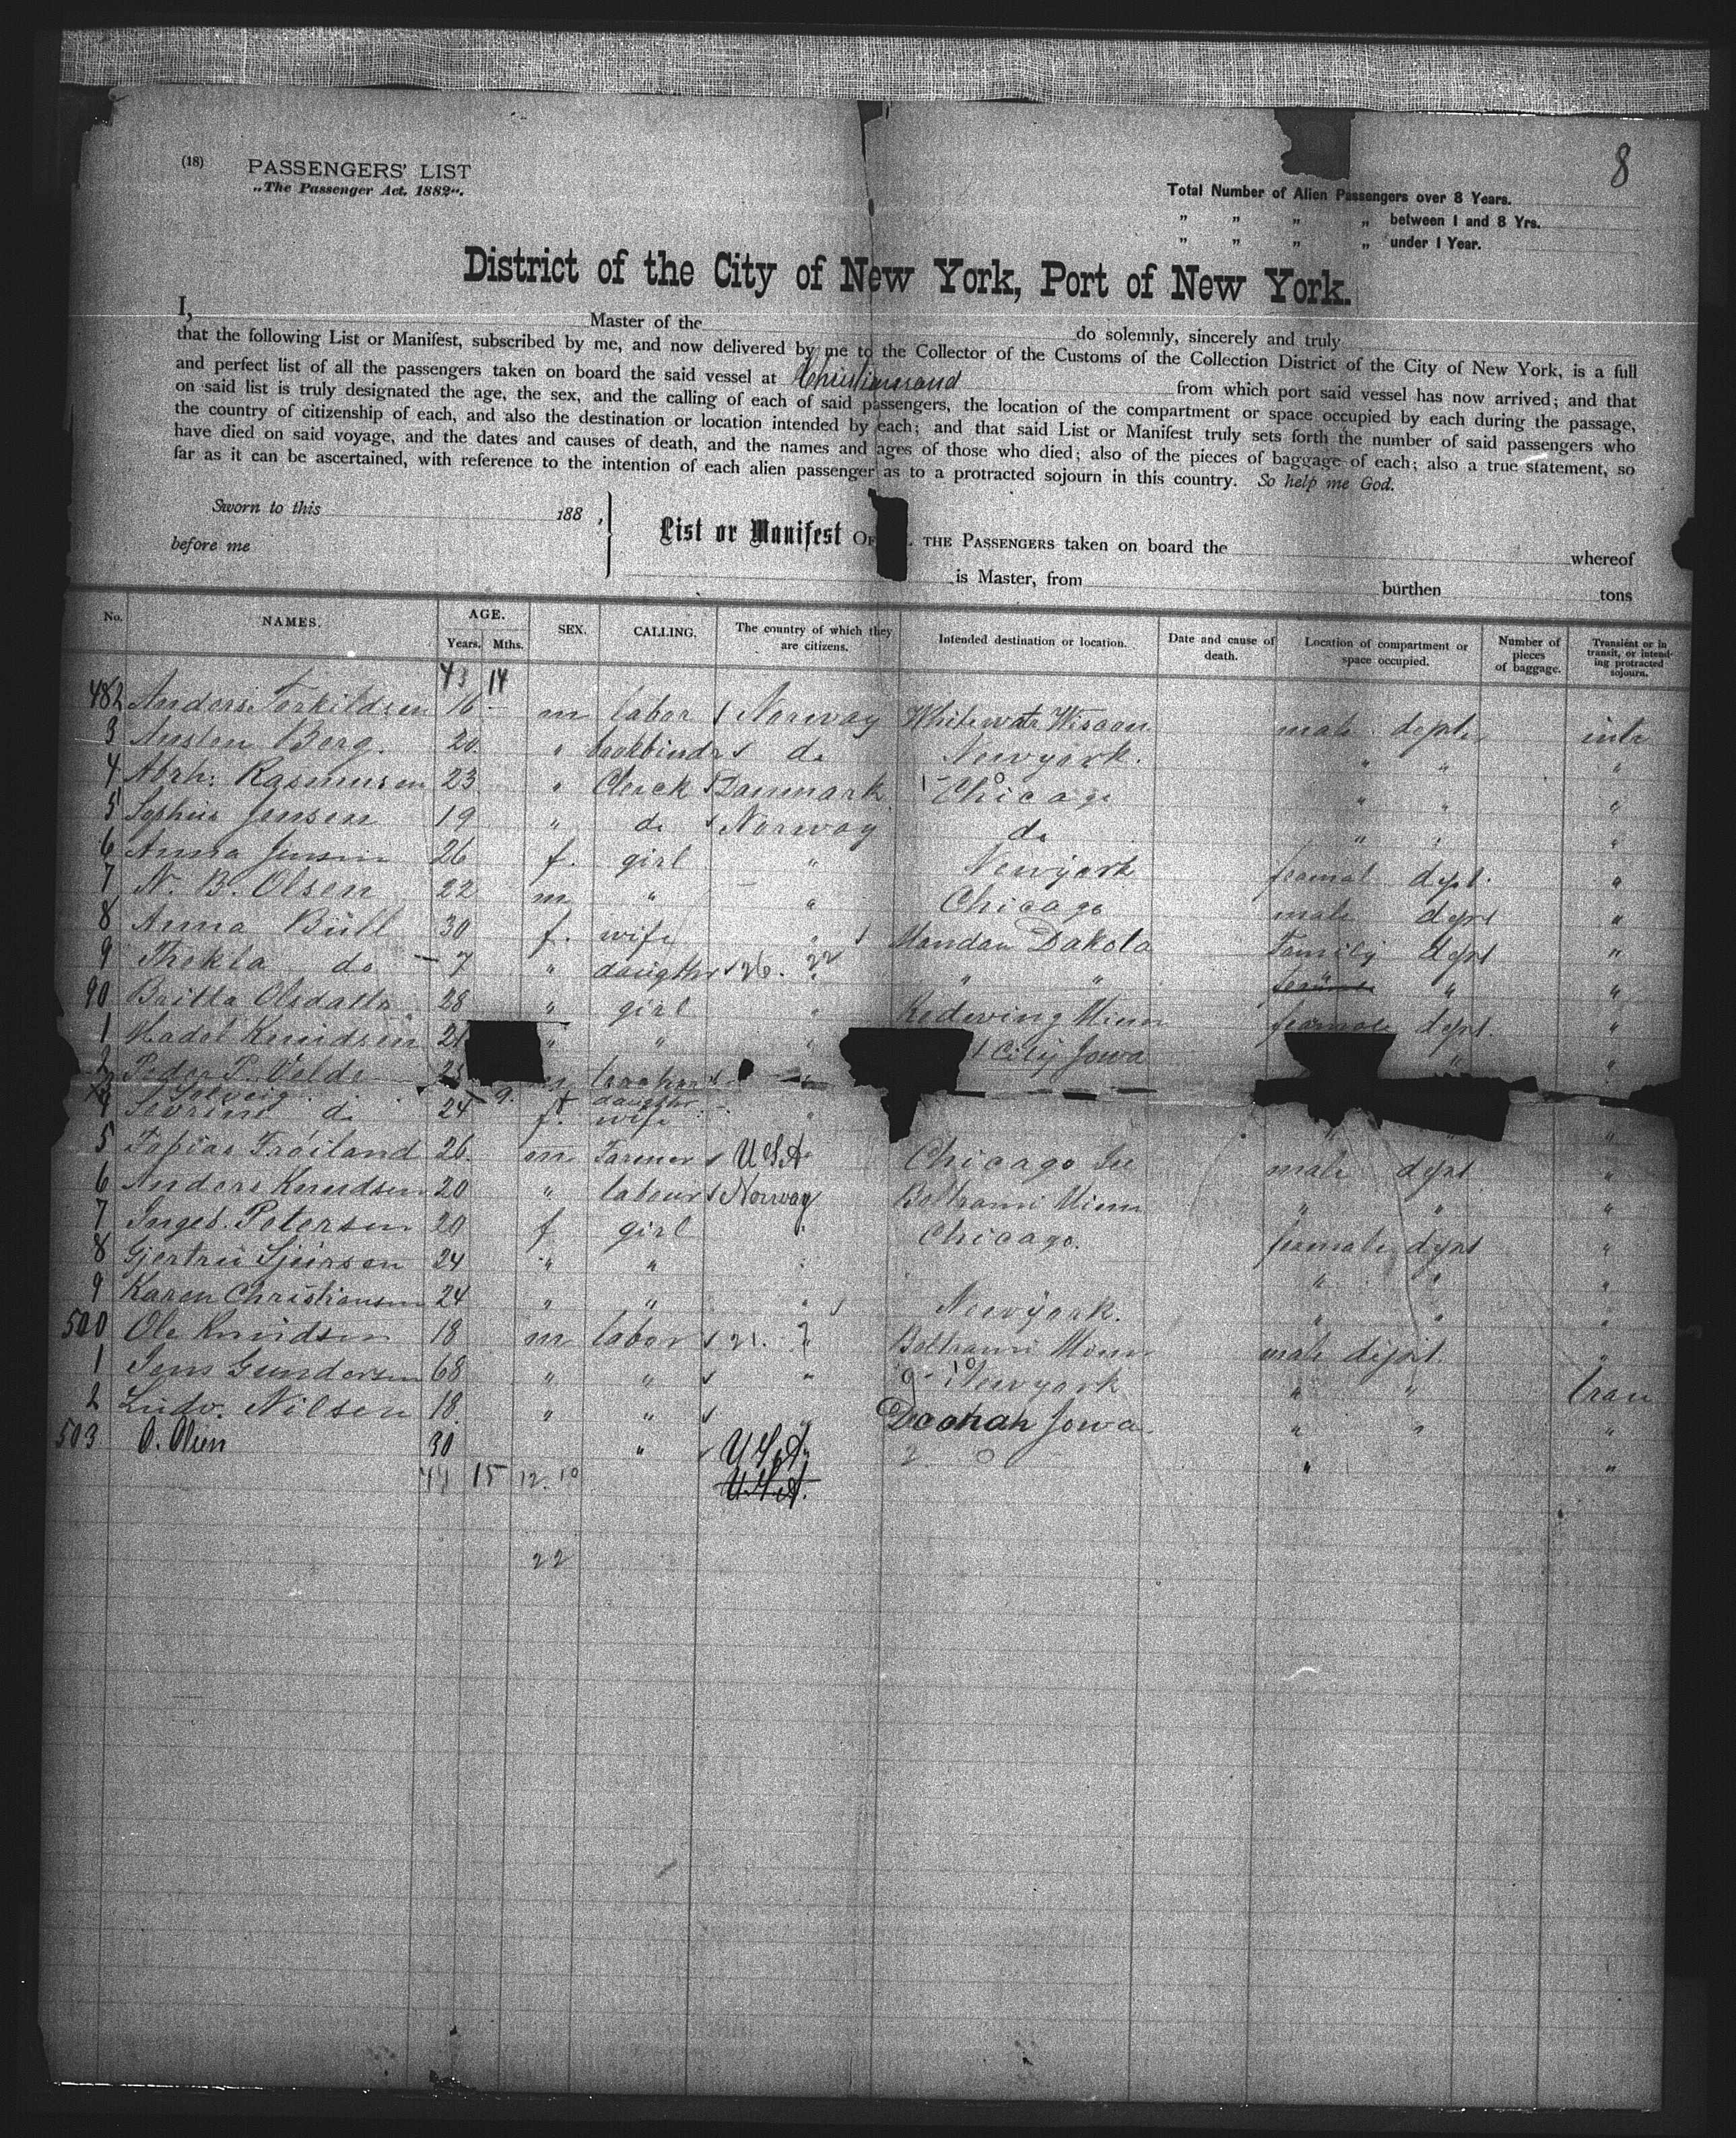 8
(18) PASSENGERS' LIST
„The Passenger Act, 1882".
Total Number of Alien Passengers over 8 Years.
" " " " between 1 and 8 Yrs.
" " " " under 1 Year.
District of the City of New York, Port of New York.
I, Master of the do solemnly, sincerely and truly
that the following List or Manifest, subscribed by me, and now delivered by me to the Collector of the Customs of the Collection District of the City of New York, is a full
and perfect list of all the passengers taken on board the said vessel at Christiansand from which port said vessel has now arrived; and that
on said list is truly designated the age, the sex, and the calling of each of said passengers, the location of the compartment or space occupied by each during the passage,
the country of citizenship of each, and also the destination or location intended by each; and that said List or Manifest truly sets forth the number of said passengers who
have died on said voyage, and the dates and causes of death, and the names and ages of those who died; also of the pieces of baggage of each; also a true statement, so
far as it can be ascertained, with reference to the intention of each alien passenger as to a protracted sojourn in this country. So help me God.
Sworn to this 188 ,
before me
List or Manifest OF THE PASSENGERS taken on board the whereof
is Master, from burthen tons
No. NAMES. AGE. Years. Mths. SEX. CALLING. The country of which they are citizens. Intended destination or location. Date and cause of death. Location of compartment or space occupied. Number of pieces of baggage. Transient or in transit, or intending protracted sojourn.
43 14
482 Anders Torkildsen 16 m labor Norway Whitewater Wiscon male dept
3 Austen Berg. 20 " bookbindr do Newyork. " " "
4 Abrh. Rasmusen 23 " Clerck Danmark Chicago " " "
5 Sophus Jensen 19 " do Norway do " " "
6 Anna Jensen 26 f. girl " Newyork feamal dept. "
7 N. B. Olsen 22 m " " Chicago male dept "
8 Anna Büll 30 f. wife " Mandan Dakota Family dept "
9 Thekla do 7 " daugthr 26. 22 " " " "
90 Britta Olsdatter 28 " girl " Redwing Minn feamale dept. "
1 Madel Knudsen 21 " " " City Jowa " "
2 Peder P. Velde 25 m
Solveig 9. f daugthr
4 Sevrine do 24 f. wife " " " "
5 Tobias Tröiland 26 m Farmer U S A Chicago Ill male dept "
6 Anders Knudsen 20 " labour Norway Beltrami Minn " " "
7 Ingeb. Petersen 20 f girl " Chicago. feamale dept "
8 Gjertru Sjursen 24 " " " " " "
9 Karen Christiansen 24 " " " Newyork. " " "
500 Ole Knudsen 18 m labor 21. " Beltrami Minn male dept. "
1 Jens Gundersen 68 " " " Newyork " " tran
2 Ludv. Nilsen 18 " " " Decorah Jowa " " "
503 O. Olsen 30 " U S A " "
44 15 12. 10 U.S.A.
22